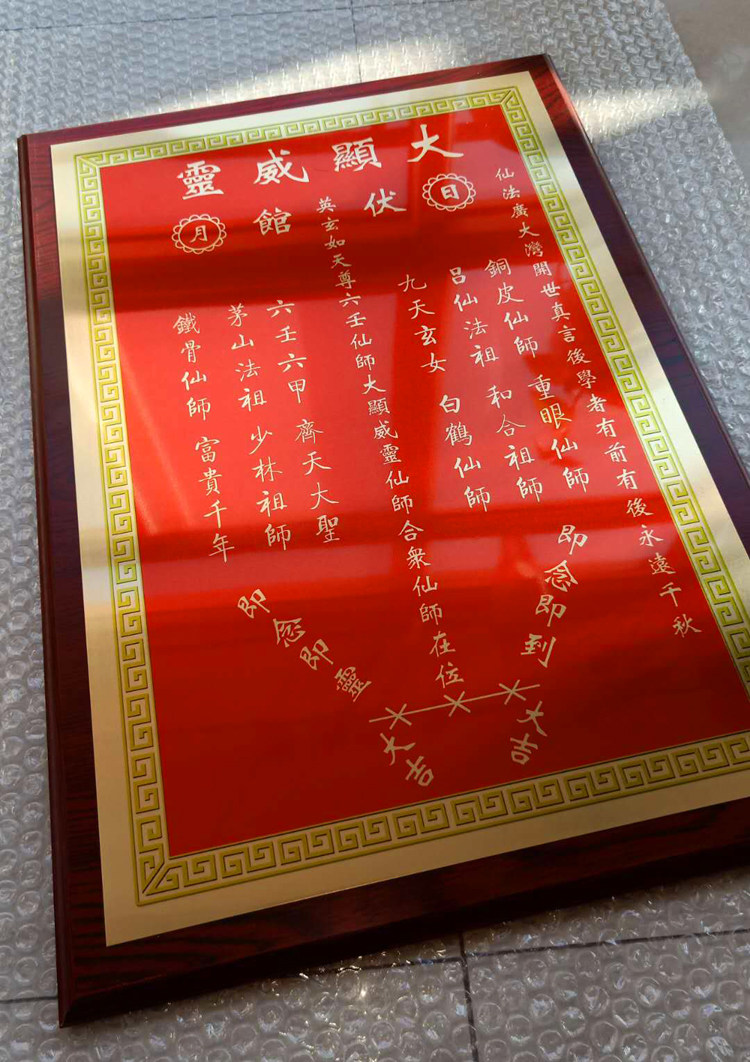 大顯威靈
伏館
日
月
仙法廣大灣開世真言後學者有前有後永遠千秋
銅皮仙師 重眼仙師
呂仙法祖 和合祖師
九天玄女 白鶴仙師
英玄如天尊六壬仙師大顯威靈仙師合衆仙師在位
六壬六甲 齊天大聖
茅山法祖 少林祖師
鐵骨仙師 富貴千年
即念即到
即念即靈
大吉
大吉